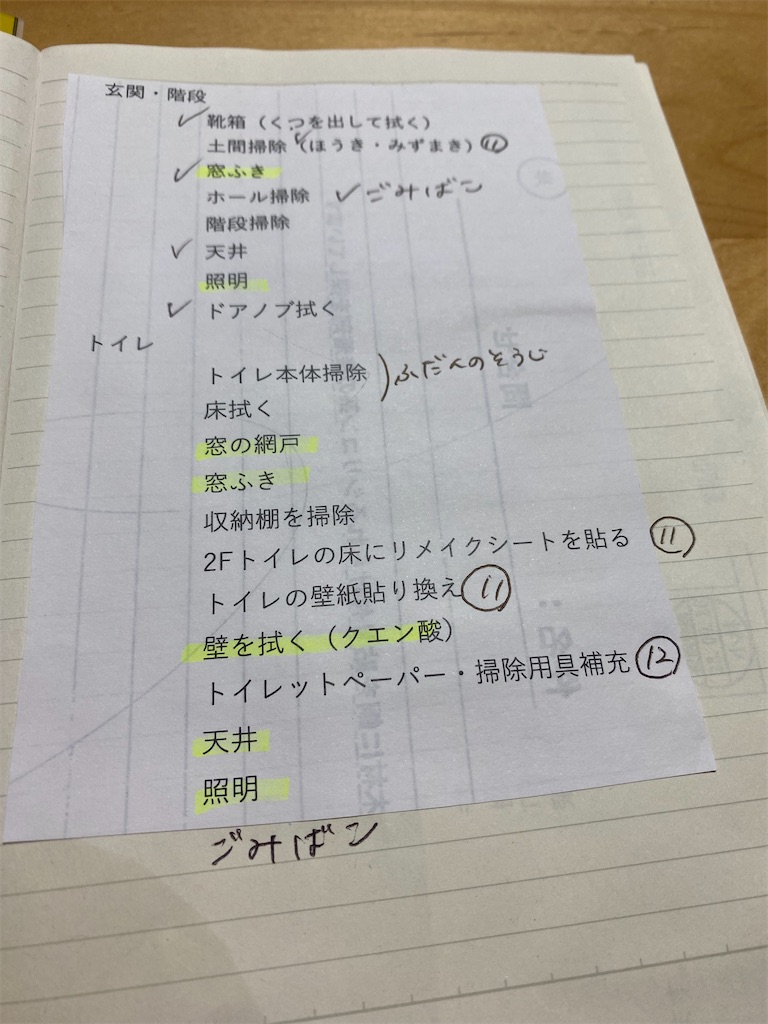 玄関・階段
✓ 靴箱（くつを出して拭く）
土間掃除（✓ほうき・みずまき）⑪
✓ 窓ふき
ホール掃除 ✓ごみばこ
階段掃除
✓ 天井
照明
✓ ドアノブ拭く
トイレ
トイレ本体掃除 ）ふだんのそうじ
床拭く
窓の網戸
窓ふき
収納棚を掃除
2Fトイレの床にリメイクシートを貼る ⑪
トイレの壁紙貼り換え ⑪
壁を拭く（クエン酸）
トイレットペーパー・掃除用具補充 ⑫
天井
照明
ごみばこ